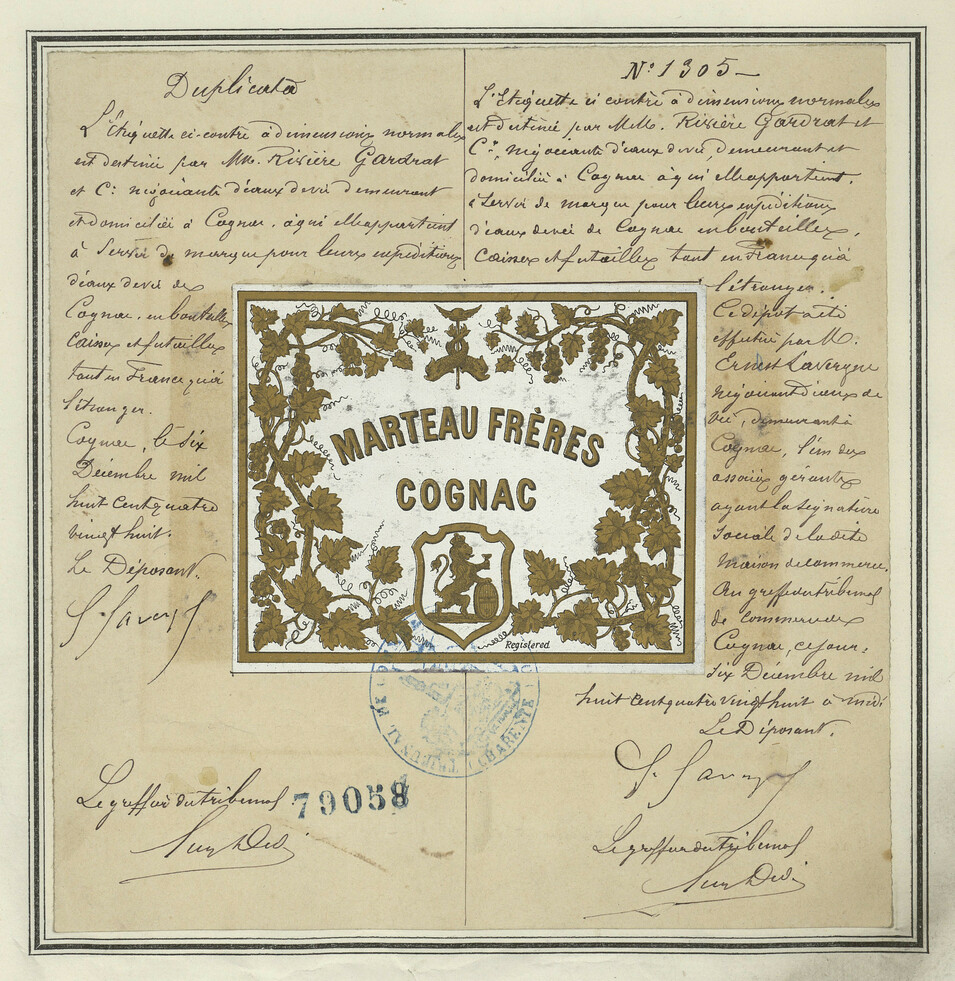 Duplicata
L'Etiquette ci-contre à dimensions normales
est destinée par MM. Rivière Gardrat
et Cie négociants d'eaux de vie demeurant
et domiciliés à Cognac, à qui elle appartient
à Servir de marque pour leurs expéditions
d'eaux de vie de
Cognac, en bouteilles
Caisses et futailles
tant en France qu'à
l'étranger.
Cognac, le Six
Décembre mil
huit Cent quatre
vingt huit.
Le Déposant.
Le greffier du tribunal
79058
N° 1305 —
L'Etiquette ci contre à dimensions normales
est destinée par M.M. Rivière Gardrat et
Cie, négociants d'eaux de vie, demeurant et
domiciliés à Cognac à qui elle appartient,
à Servir de marque pour leurs expéditions
d'eaux de vie de Cognac en bouteilles,
Caisses et futailles tant en France qu'à
l'étranger.
Ce dépôt a été
effectué par M.
Ernest Lavergne
négociant d'eaux de
vie, demeurant à
Cognac, l'un des
associés gérants
ayant la signature
sociale de la dite
maison de commerce.
Au greffe du tribunal
de commerce de
Cognac, ce jour:
six Décembre mil
huit cent quatre vingt huit à midi
Le Déposant.
Le greffier du tribunal
MARTEAU FRÈRES
COGNAC
Registered
TRIBUNAL DE
CHARENTE